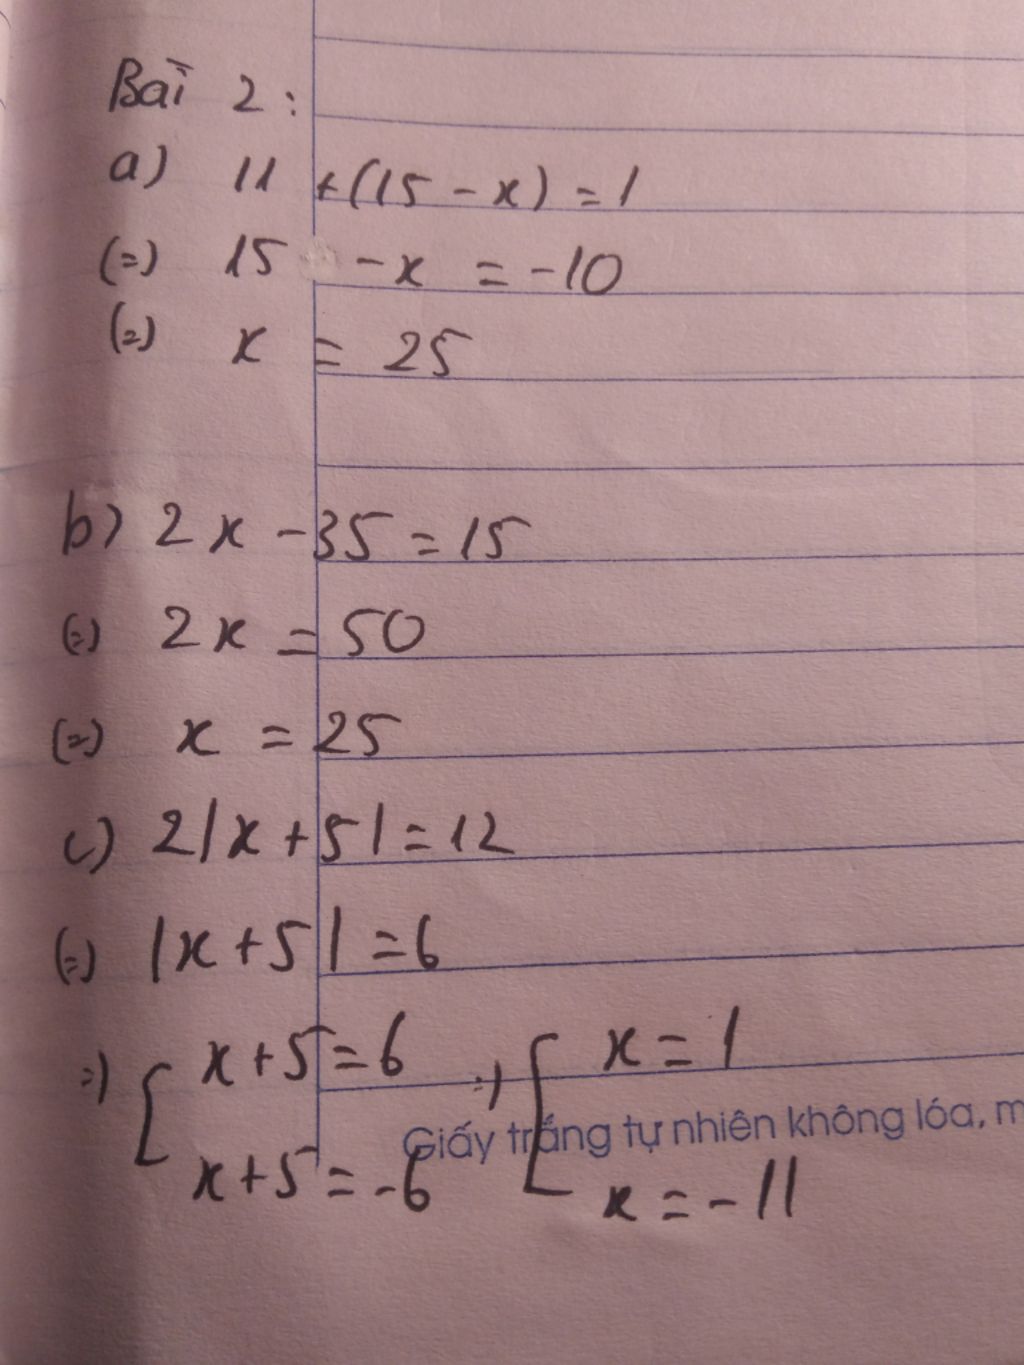 Bài 2:
a) 11 +(15 - x) = 1
(=) 15 - x = -10
(=) x = 25
b) 2x - 35 = 15
(=) 2x = 50
(=) x = 25
c) 2|x + 5| = 12
(=) |x + 5| = 6
=) [ x + 5 = 6 =) [ x = 1
Giấy trắng tự nhiên không lóa, m
x + 5 = -6 x = -11